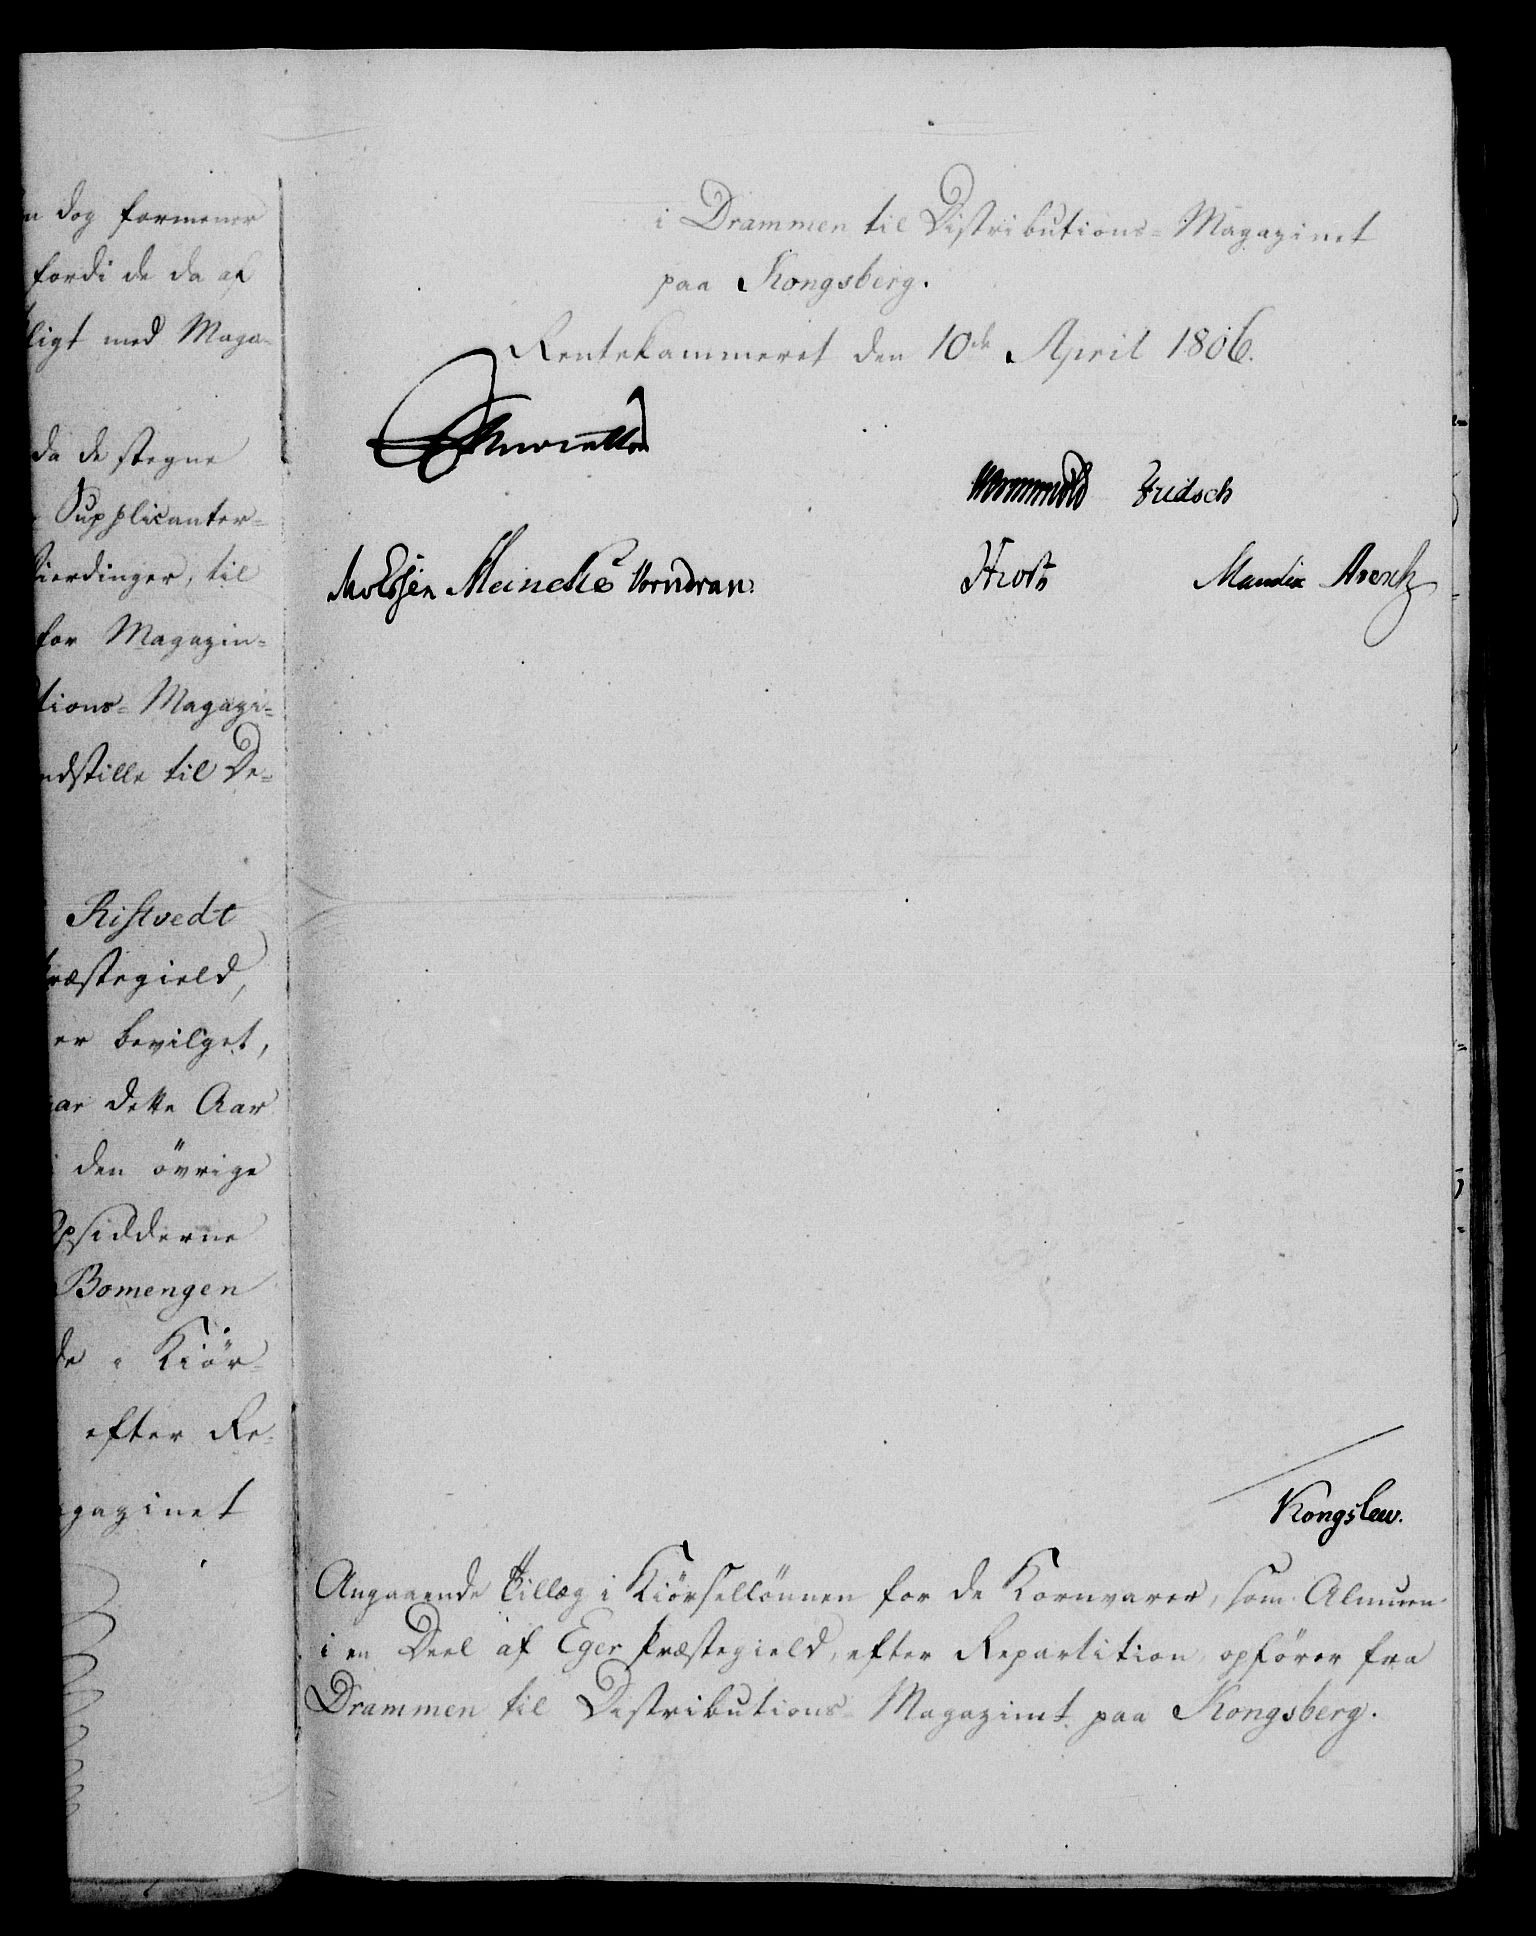 dog formener
fordi de da af
ligt med Maga-
da de stegne
Supplicanter-
fierdinger, til
for Magazin-
tions- Magazi-
indstille til De-
Ristvedt
Præstegield,
er bevilget,
dette Aar
den övrige
Opsidderne
Bomengen
de i Kiör-
efter Re-
gazinet
i Drammen til Distributions- Magazinet
paa Kongsberg.
Rentekammeret den 10de April 1806.
Wormskiold
Meincke Vorndran.
Kongslew.
Angaaende Tillæg i Kiörsellönnen for de Kornvarer, som Almuen
i en Deel af Eger Præstegield, efter Repartition opförer fra
Drammen til Distributions- Magazinet paa Kongsberg.